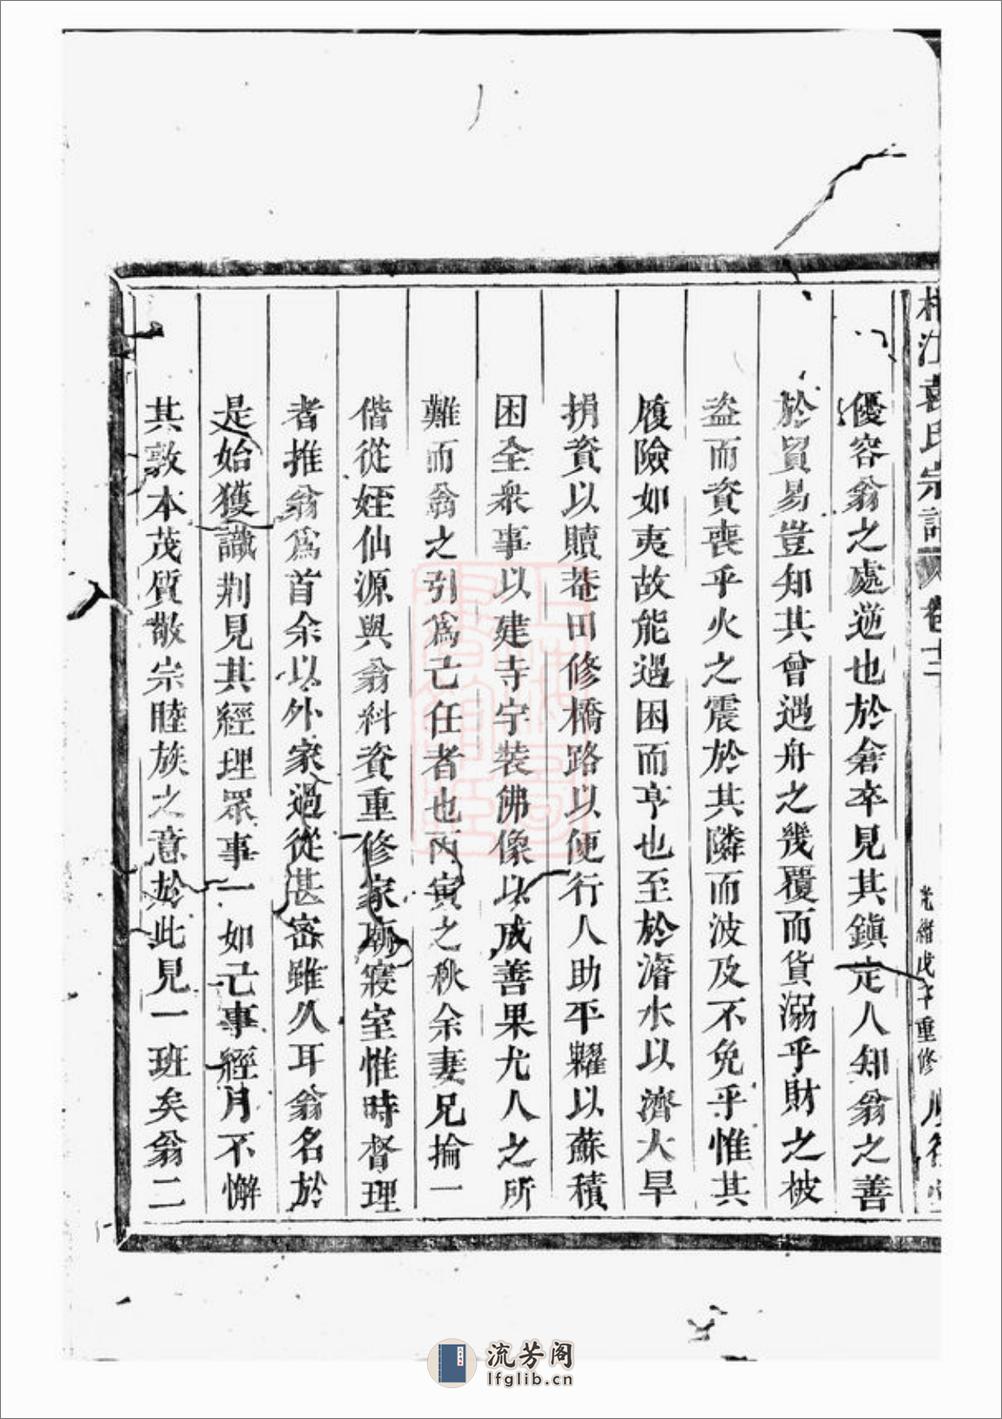 江 氏宗譜 卷十二 光緒戊 重修
優容翁之處逆也於倉卒見其鎮定人知翁之善
於貿易豈知其曾遇舟之幾覆而貨溺乎財之被
盜而資喪乎火之震於其隣而波及不免乎惟其
履險如夷故能遇困而亨也至於濬水以濟大旱
捐資以贖菴田修橋路以便行人助平糶以蘇積
困全衆事以建寺宇裝佛像以成善果尤人之所
難而翁之引爲己任者也丙寅之秋余妻兄掄一
偕從姪仙源與翁糾資重修家廟寢室惟時督理
者推翁爲首余以外家過從甚密雖久耳翁名於
是始獲識荆見其經理眾事一如己事經月不懈
其敦本茂質敬宗睦族之意於此見一班矣翁二
流芳阁
lfglib.cn